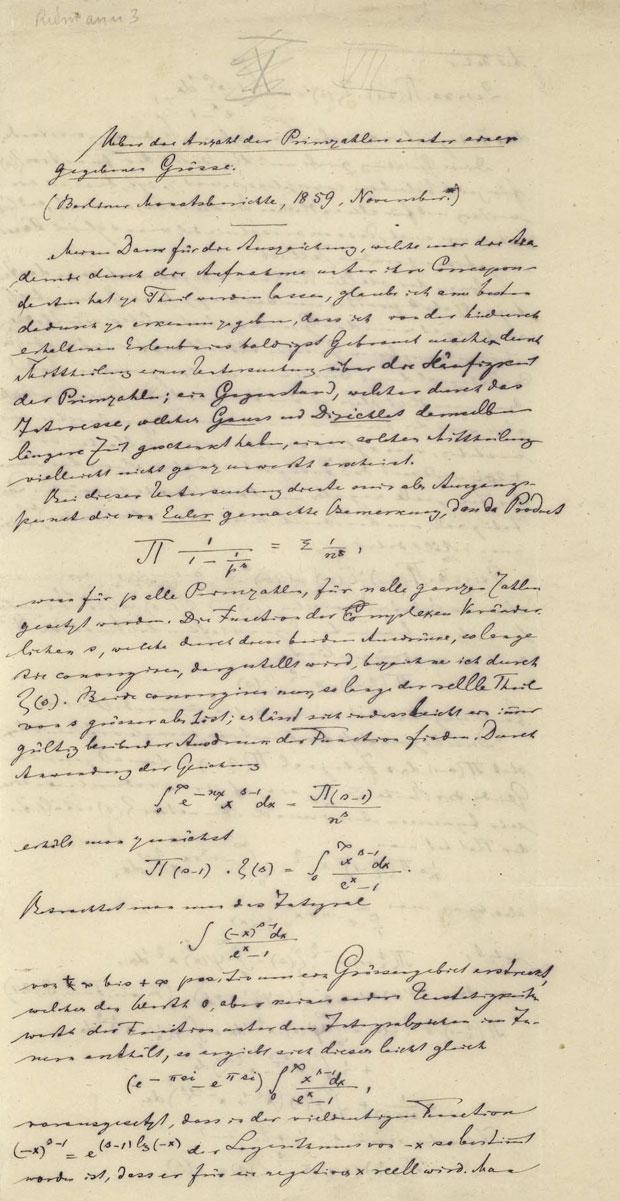 Riemann 3
X VII
Ueber die Anzahl der Primzahlen unter einer
gegebenen Grösse.
(Berliner Monatsberichte, 1859, November.)
Meinen Dank für die Auszeichnung, welche mir die Aka
demie durch die Aufnahme unter ihre Correspon-
denten hat zu Theil werden lassen, glaube ich am besten
dadurch zu erkennen zu geben, dass ich von der hiedurch
erhaltenen Erlaubniss baldigst Gebrauch mache durch
Mittheilung einer Untersuchung über die Häufigkeit
der Primzahlen; ein Gegenstand, welcher durch das
Interesse, welches Gauss und Dirichlet demselben
längere Zeit geschenkt haben, einer solchen Mittheilung
vielleicht nicht ganz unwerth erscheint.
Bei dieser Untersuchung diente mir als Ausgangs-
punct die von Euler gemachte Bemerkung, dass das Product
∏ 1/(1 − 1/p^s) = Σ 1/n^s,
wenn für p alle Primzahlen, für n alle ganzen Zahlen
gesetzt werden. Die Function der complexen Veränder
lichen s, welche durch diese beiden Ausdrücke, so lange
sie convergiren, dargestellt wird, bezeichne ich durch
ζ(s). Beide convergiren nur, so lange der reelle Theil
von s grösser als 1 ist; es lässt sich indess leicht ein immer
gültig bleibender Ausdruck der Function finden. Durch
Anwendung der Gleichung
∫₀^∞ e^{−nx} x^{s−1} dx = Π(s−1)/n^s
erhält man zunächst
Π(s−1) . ζ(s) = ∫₀^∞ x^{s−1}dx/(e^x − 1) .
Betrachtet man nun das Integral
∫ (−x)^{s−1}dx/(e^x − 1)
von + ∞ bis + ∞ positiv um ein Grössengebiet erstreckt,
welches den Werth 0, aber keinen andern Unstetigkeits
werth der Function unter dem Integralzeichen im In-
nern enthält, so ergiebt sich dieses leicht gleich
(e^{−πsi} − e^{πsi}) ∫₀^∞ x^{s−1}dx/(e^x − 1),
vorausgesetzt, dass in der vieldeutigen Function
(−x)^{s−1} = e^{(s−1) lg(−x)} der Logarithmus von −x so bestimmt
worden ist, dass er für ein negatives x reell wird. Man